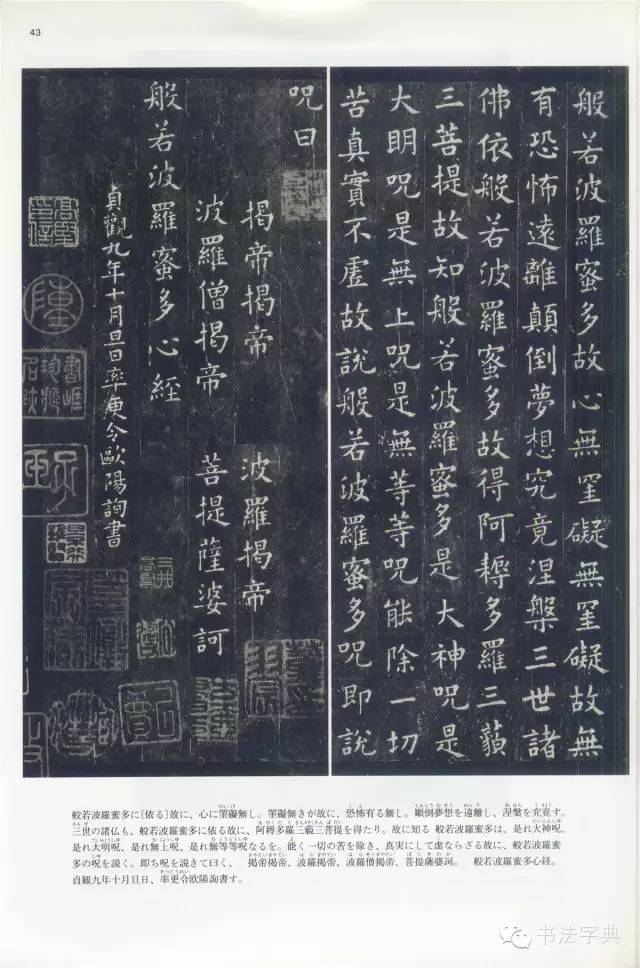 43
般若波羅蜜多故心無罣礙無罣礙故無
有恐怖遠離顛倒夢想究竟涅槃三世諸
佛依般若波羅蜜多故得阿耨多羅三藐
三菩提故知般若波羅蜜多是大神呪是
大明呪是無上呪是無等等呪能除一切
苦真實不虛故説般若波羅蜜多呪即説
呪曰
揭帝揭帝 波羅揭帝
波羅僧揭帝 菩提薩婆訶
般若波羅蜜多心經
貞觀九年十月旦日率更令歐陽詢書
般若波羅蜜多に[依る]故に、心に罣礙無し。罣礙無きが故に、恐怖有る無し。顚倒夢想を遠離し、涅槃を究竟す。
三世の諸仏も、般若波羅蜜多に依る故に、阿耨多羅三藐三菩提を得たり。故に知る 般若波羅蜜多は、是れ大神呪、
是れ大明呪、是れ無上呪、是れ無等等呪なるを。能く一切の苦を除き、真実にして虚ならざる故に、般若波羅蜜
多の呪を説く。即ち呪を説きて曰く、 揭帝揭帝、波羅揭帝、波羅僧揭帝、菩提薩婆訶。 般若波羅蜜多心経。
貞観九年十月旦日、率更令欧陽詢書す。
书法字典